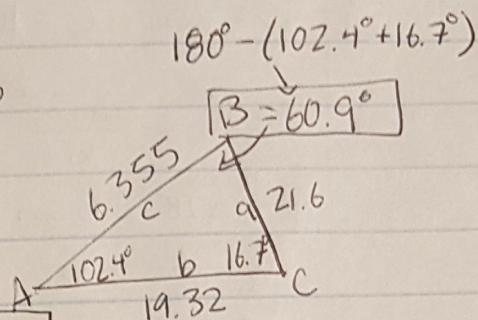 180° - (102.4° + 16.7°)
B = 60.9°
6.355
c
a 21.6
102.4° b 16.7°
A C
19.32